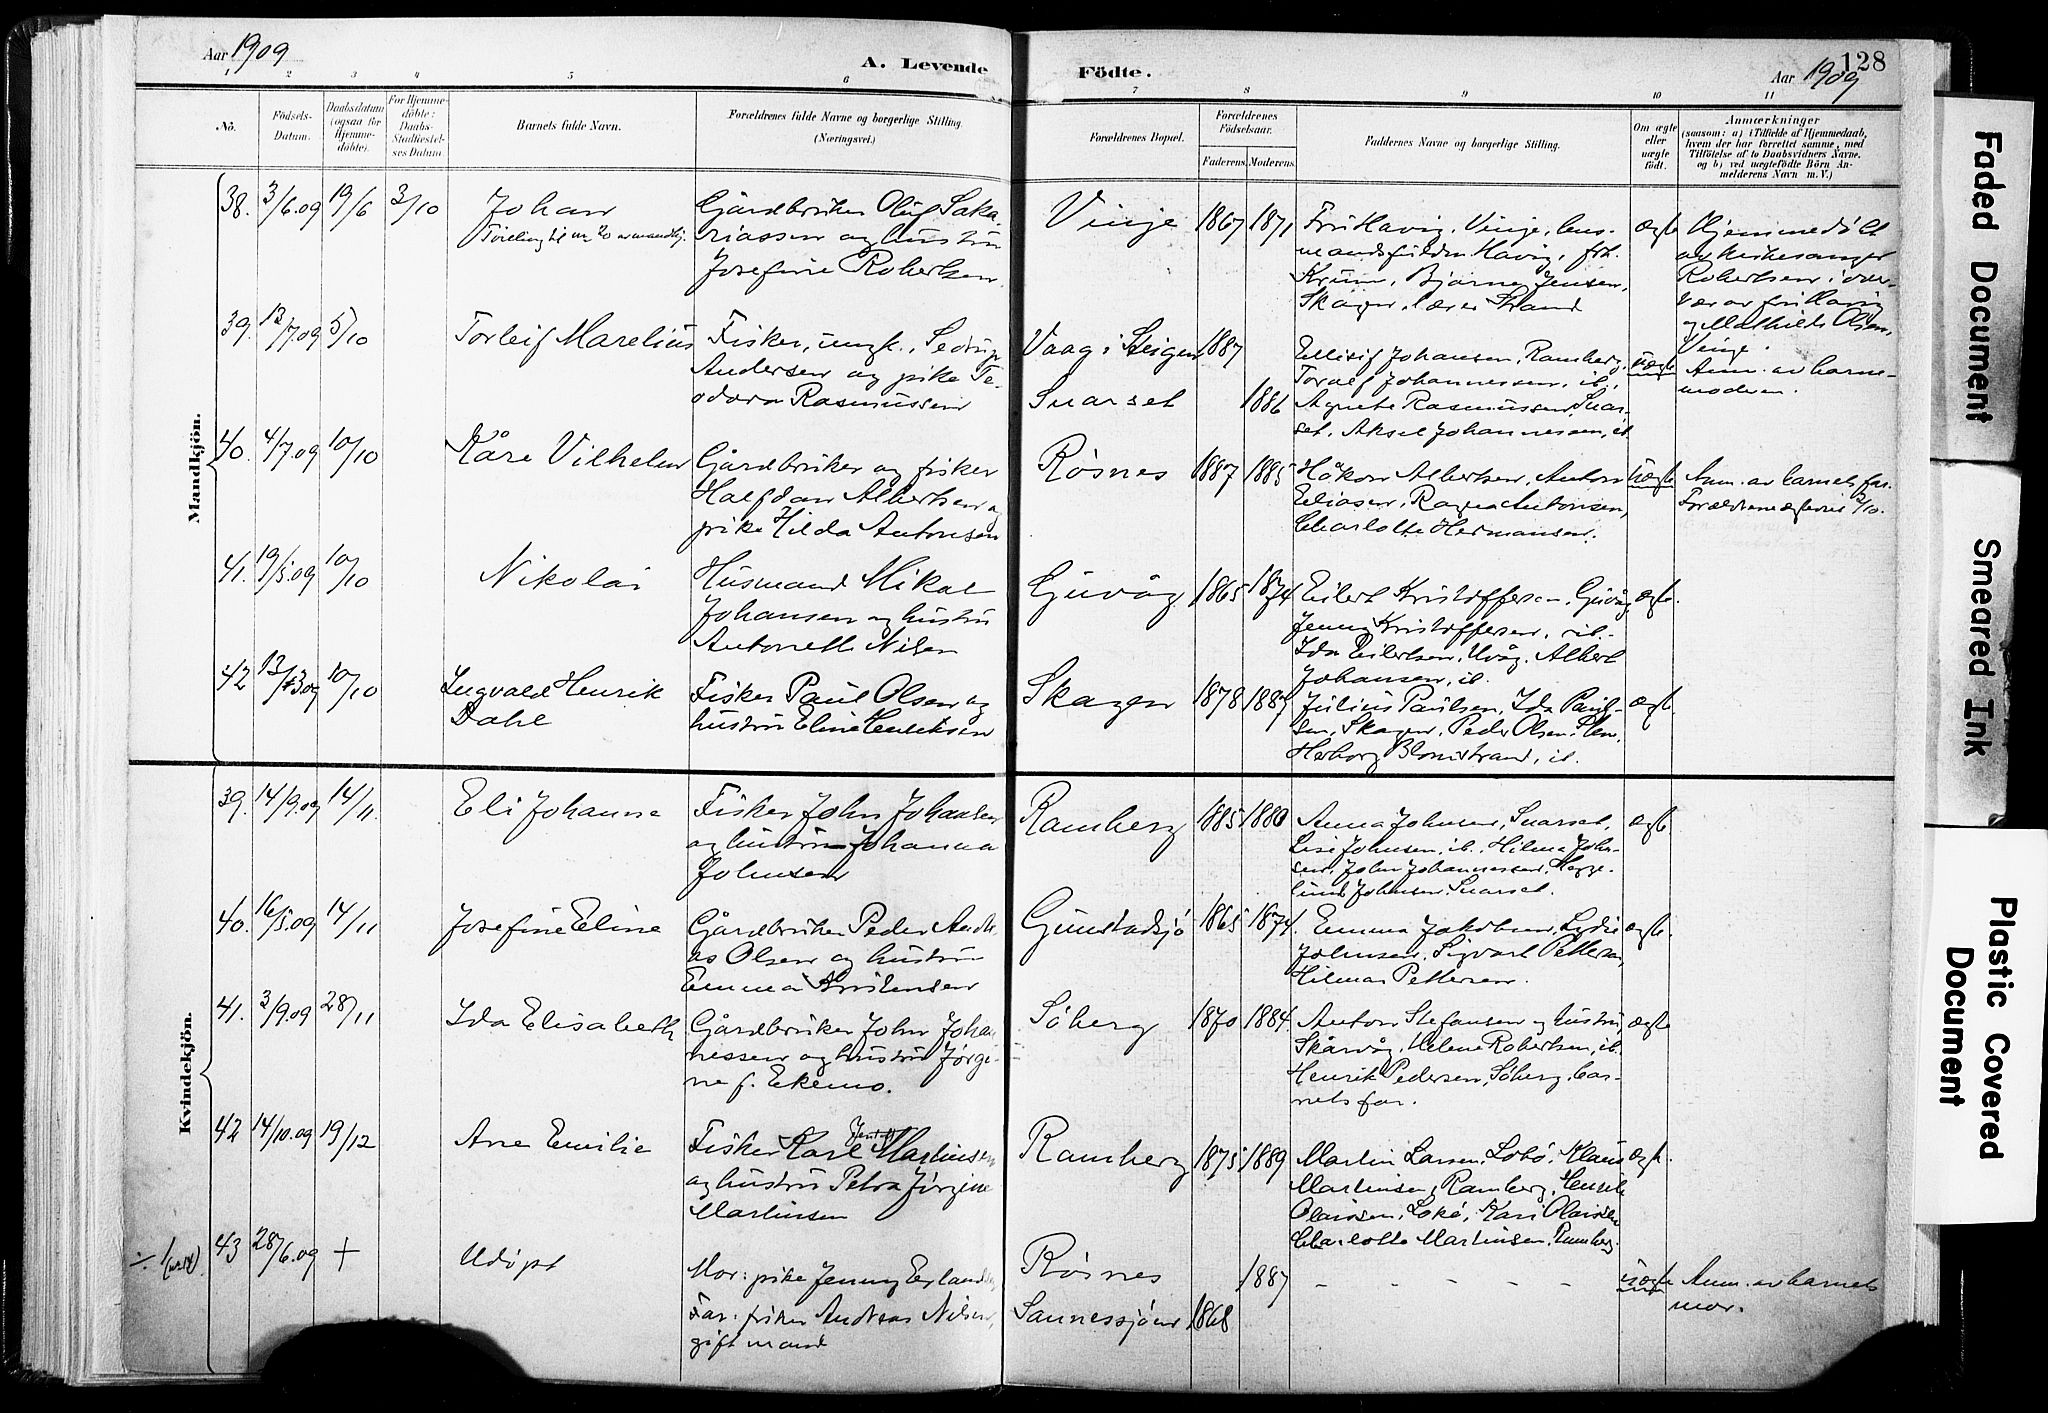 Aar 1909
A. Levende
Födte.
Aar 1909
128
1 2 3 4 5 6 7 8 9 10 11
No.
Födsels-
Datum.
Daabsdatum
(ogsaa for
Hjemme-
döbte).
For Hjemme-
döbte:
Daabs-
Stadfæstel-
ses Datum
Barnets fulde Navn.
Forældrenes fulde Navne og borgerlige Stilling.
(Næringsvei.)
Forældrenes Bopæl.
Forældrenes
Födselsaar.
Faderens. Moderens.
Faddernes Navne og borgerlige Stilling.
Om ægte
eller
uægte
födt.
Anmærkninger
(saasom: a) i Tilfælde af Hjemmedaab,
hvem der har forrettet samme, med
Tilföielse af to Daabsvidners Navne,
og b) ved uægtefödte Börn An-
melderens Navn m. V.)
Mandkjön.
38. 3/6.09 19/6 3/10 Johan
Gårdbruker Oluf Saka-
riassen og hustru
Josefine Robertsen.
Vinje 1867 1871
Fru Havig, Vinje, lens-
mandsfuldm. Havig, frk.
Krum, Bjarne Jensen,
Skagen, lærer Strand
ægte
Hjemmedøbt
av kirkesanger
Robertsen i over-
vær av fru Havig
og Mathilde Olsen,
Vinje.
39. 13/7.09 5/10 Torleif Marelius
Fisker, ungk., Sedrup
Andersen og pike Te-
odora Rasmussen
Vaag i Steigen 1887
Snarset 1886
Ellisif Johansen, Ramberg,
Toralf Johannessen, ib.,
Agnete Rasmussen, Snar-
set, Aksel Johannessen, ib.
uægte
Anm. av barne-
moderen.
40. 4/7.09 10/10 Kåre Vilhelm
Gårdbruker og fisker
Halfdan Albertsen og
pike Hilda Antonsen
Røsnes 1887 1885
Håkon Albertsen, Anton
Eliasen, Ragna Antonsen,
Charlotte Hermansen.
uægte
Anm. av barnets far.
41. 19/5.09 10/10 Nikolai
Husmand Mikal
Johansen og hustru
Antonette Nilsen
Guvåg 1865 1874
Eilert Kristoffersen, Guvåg,
Jenny Kristoffersen, ib.
Ida Eilertsen, Uvåg, Albert
Johansen, ib.
ægte.
42 10/10 Ingvald Henrik
Dahl
Fisker Paul Olsen og
hustru Eline Henriksen
Skagen 1878 1887
Julius Paulsen, Ida Paul-
sen, Skagen, Peder Olsen,
Herborg Blomstrand, ib.
ægte
Kvindekjön.
39. 14/9.09 14/11 Eli Johanna
Fisker John Johansen
og hustru Johanna
Johnsen
Ramberg 1885 1880
Anna Johnsen, Snarset,
Lise Johnsen, ib., Hilma John-
sen, John Johannessen, Hege-
lund Johnsen, Snarset.
ægte
40. 16/5.09 14/11 Josefine Eline
Gårdbruker Peder Andr-
eas Olsen og hustru
Emma Kristensen
Gunstadsjø 1865 1874
Emma Jakobsen, Lydie
Johnsen, Sigvart Pettersen,
Hilmar Pettersen.
ægte.
41. 3/9.09 28/11 Ida Elisabeth
Gårdbruker John Joha-
nessen og hustru Jørgi-
ne f. Ekemo.
Søberg 1870 1884
Anton Stefansen og hustru,
Skårvåg, Helene Robertsen, ib.
Henrik Pedersen, Søberg, bar-
nets far.
ægte
42 14/10.09 19/12 Ane Emilie
Fisker Karl Martinsen
og hustru Petra Jørgine
Martinsen
Ramberg 1875 1889
Martin Larsen, Lobø, Klaus
Martinsen, Ramberg, Henrik
Olaissen, Lokø, Kari Olaissen
Charlotte Martinsen, Ramberg.
ægt.
43 28/6.09 + Udøpt
Mor: pike Jenny Erlandsen
Far: fisker Andreas Nilsen,
gift mand
Røsnes 1887
Sannessjøen 1868
uægte
Anm. av barnets
mor.
Faded Document
Smeared Ink
Plastic Covered
Document